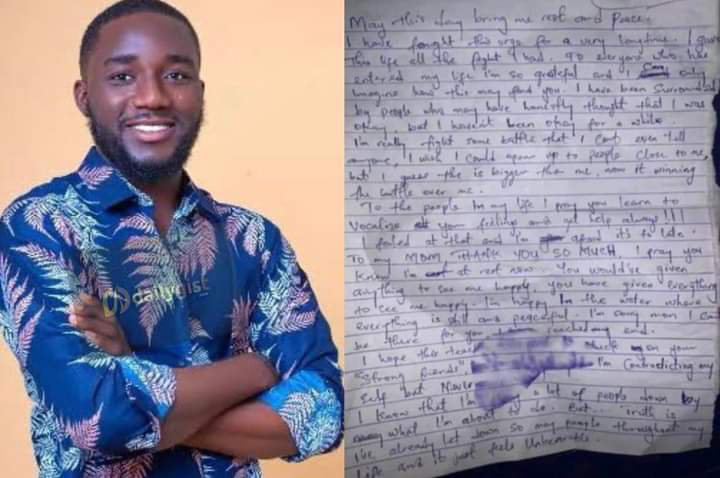 dailygist
May this day bring me rest and Peace.
I have fought this urge for a very longtime. I gave
This life all the fight I had. To everyone who has
entered my life I'm so grateful and I can only
Imagine how this may find you. I have been Surrounded
by people who may have honestly thought that I was
okay, but I haven't been okay for a while.
I'm really fight some battle that I Cant even tell
anyone, I wish I could open up to people close to me,
but I guess the is bigger than me, now it winning
the battle over me.
To the people In my life I pray you learn to
Vocalize your feeling and get help always!!!
I failed at that and I'm afraid it's to late.
To my MOM, THANK YOU SO MUCH I pray you
Know I'm at rest now. You would've given
anything to see me happy, you have given Everything
to see me happy. I'm happy In the water where
Everything is still and peaceful. I'm sorry mom I Cant
be there for you reached my end.
I hope this check on your
"Strong friends" I'm Contradicting my
Self but
I Know that I'm a lot of people down by
what I'm about to do. But... Truth is
I've already let down so may people throughout my
life and it just feels Unbearable.